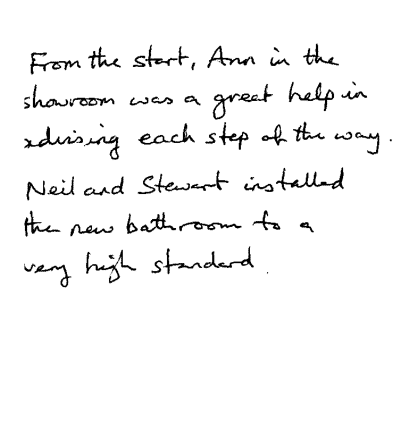 From the start, Ann in the
showroom was a great help in
advising each step of the way.
Neil and Stewart installed
the new bathroom to a
very high standard.